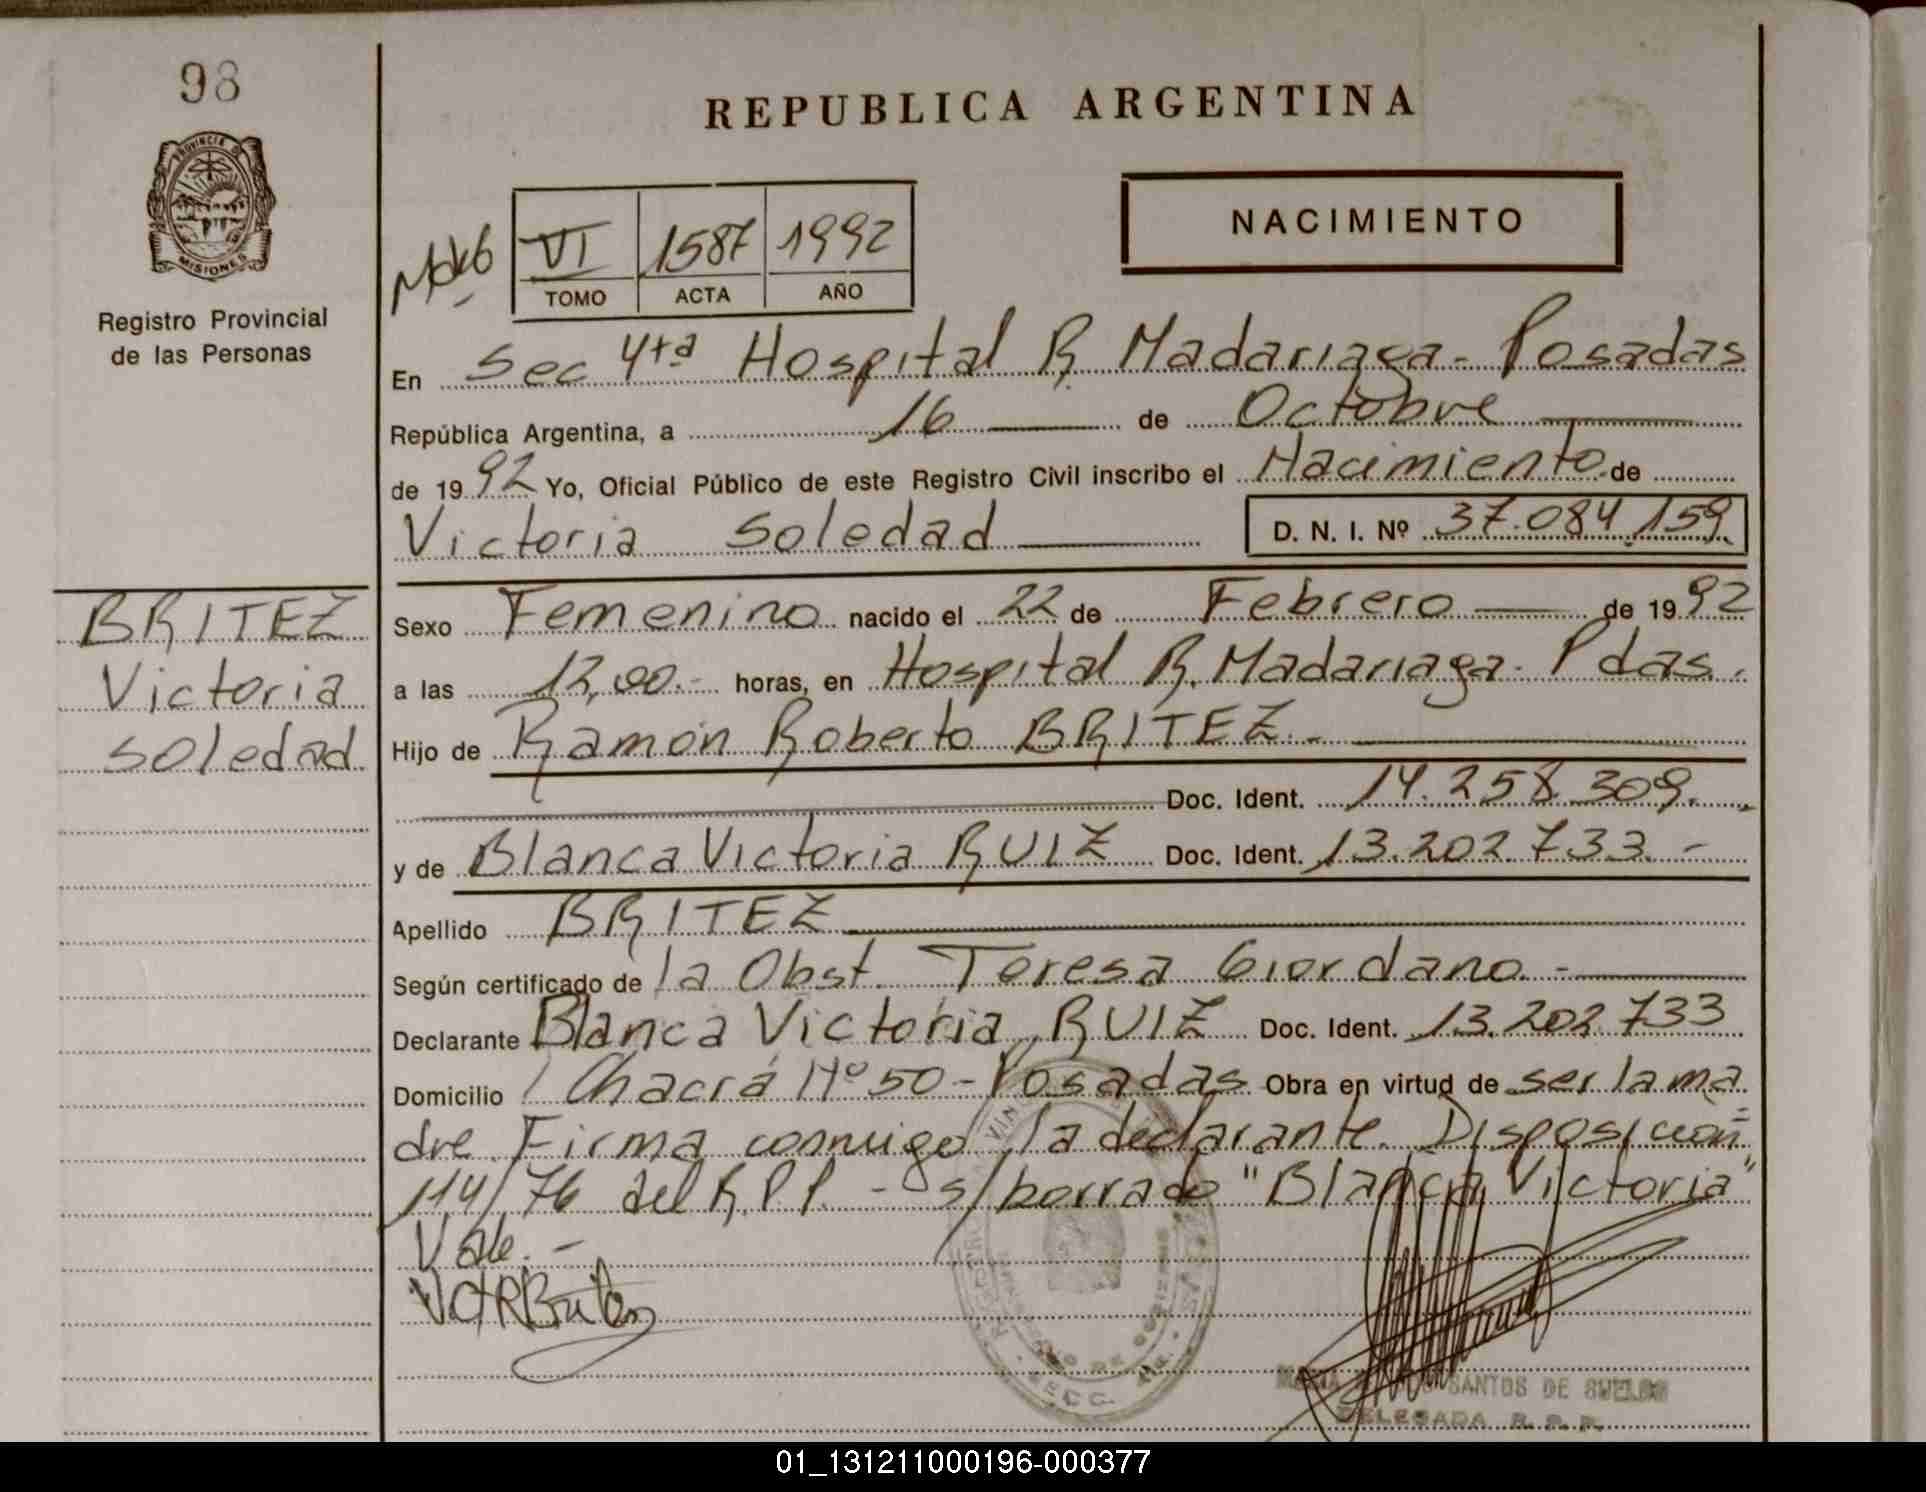 98
REPUBLICA ARGENTINA
PROVINCIA DE
MISIONES
Registro Provincial
de las Personas
NACIMIENTO
VI 1587 1992
TOMO ACTA AÑO
En Sec 4ta Hospital R. Madariaga - Posadas
República Argentina, a 16 de Octobre
de 1992 Yo, Oficial Público de este Registro Civil inscribo el Nacimiento de
Victoria Soledad D. N. I. Nº 37.084.159
BRITEZ
Victoria
Soledad
Sexo Femenino nacido el 22 de Febrero de 1992
a las 12,00.- horas, en Hospital R. Madariaga - Pdas.
Hijo de Ramón Roberto BRITEZ.-
Doc. Ident. 14.258.309.
y de Blanca Victoria RUIZ Doc. Ident. 13.202.733.-
Apellido BRITEZ
Según certificado de la Obst. Teresa Giordano.-
Declarante Blanca Victoria RUIZ Doc. Ident. 13.202.733
Domicilio Chacra Nº 50 - Posadas Obra en virtud de ser la ma
dre. Firma conmigo la declarante. Disposición
114/76 del R.P.P. - s/borrado "Blanca Victoria"
Vale.-
SANTOS DE
DELEGADA R. P. P.
01_131211000196-000377